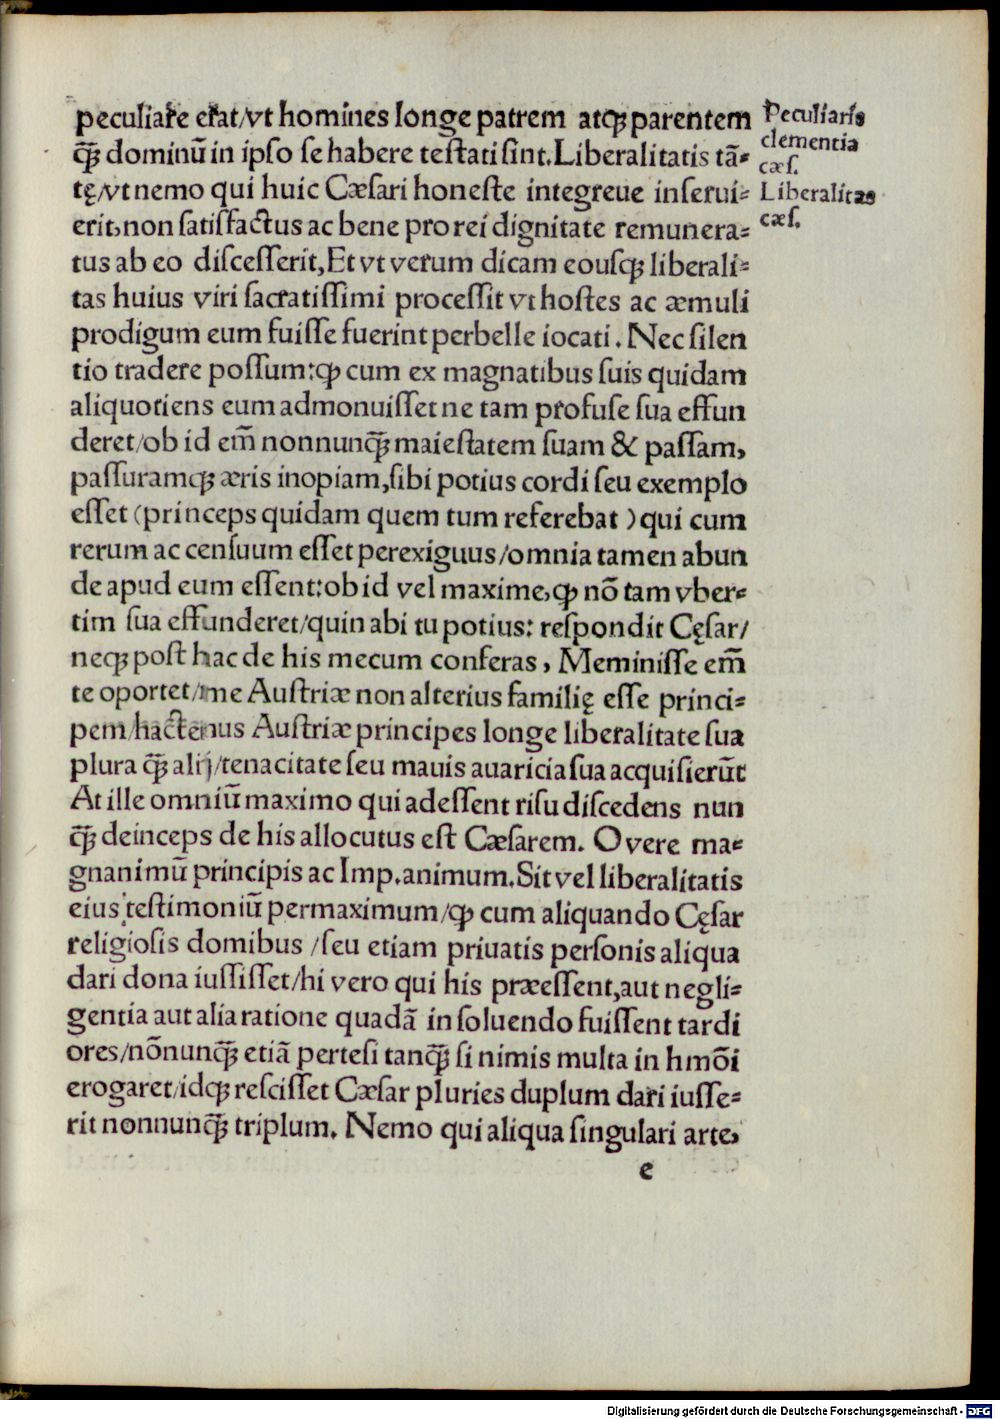 peculiare erat/vt homines longe patrem atqꝫ parentem
qꝫ̃ dominū in ipso se habere testati sint.Liberalitatis tã-
tę/vt nemo qui huic Cæsari honeste integreue inserui-
erit,non satisfactus ac bene pro rei dignitate remunera-
tus ab eo discesserit,Et vt verum dicam eousqꝫ liberali-
tas huius viri sacratissimi processit vt hostes ac æmuli
prodigum eum fuisse fuerint perbelle iocati . Nec silen
tio tradere possum:ꝙ cum ex magnatibus suis quidam
aliquotiens eum admonuisset ne tam profuse sua effun
deret/ob id em̃ nonnunqꝫ̃ maiestatem suam & passam,
passuramqꝫ æris inopiam,sibi potius cordi seu exemplo
esset (princeps quidam quem tum referebat ) qui cum
rerum ac censuum esset perexiguus/omnia tamen abun
de apud eum essent:ob id vel maxime,ꝙ nõ tam vber-
tim sua effunderet/quin abi tu potius: respondit Cęsar/
neqꝫ post hac de his mecum conferas , Meminisse em̃
te oportet/me Austriæ non alterius familię esse princi-
pem/hactenus Austriæ principes longe liberalitate sua
plura qꝫ̃ alij/tenacitate seu mauis auaricia sua acquisierūt
At ille omniū maximo qui adessent risu discedens nun
qꝫ̃ deinceps de his allocutus est Cæsarem. O vere ma-
gnanimū principis ac Imp.animum.Sit vel liberalitatis
eius testimoniū permaximum/ꝙ cum aliquando Cęsar
religiosis domibus /seu etiam priuatis personis aliqua
dari dona iussisset/hi vero qui his præessent,aut negli-
gentia aut alia ratione quadã in soluendo fuissent tardi
ores/nõnunqꝫ̃ etiã pertesi tanqꝫ̃ si nimis multa in hmõi
erogaret/idqꝫ rescisset Cæsar pluries duplum dari iusse-
rit nonnunqꝫ̃ triplum. Nemo qui aliqua singulari arte,
e
Peculiaris
clementia
cæs.
Liberalitas
cæs.
Digitalisierung gefördert durch die Deutsche Forschungsgemeinschaft - DFG